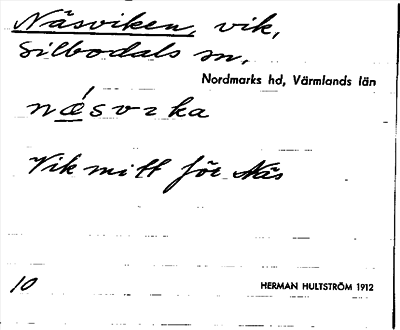 Näsviken, vik,
Silbodals sn,
Nordmarks hd, Värmlands län
næ̀́svɩka
Vik mitt för Näs
10
HERMAN HULTSTRÖM 1912